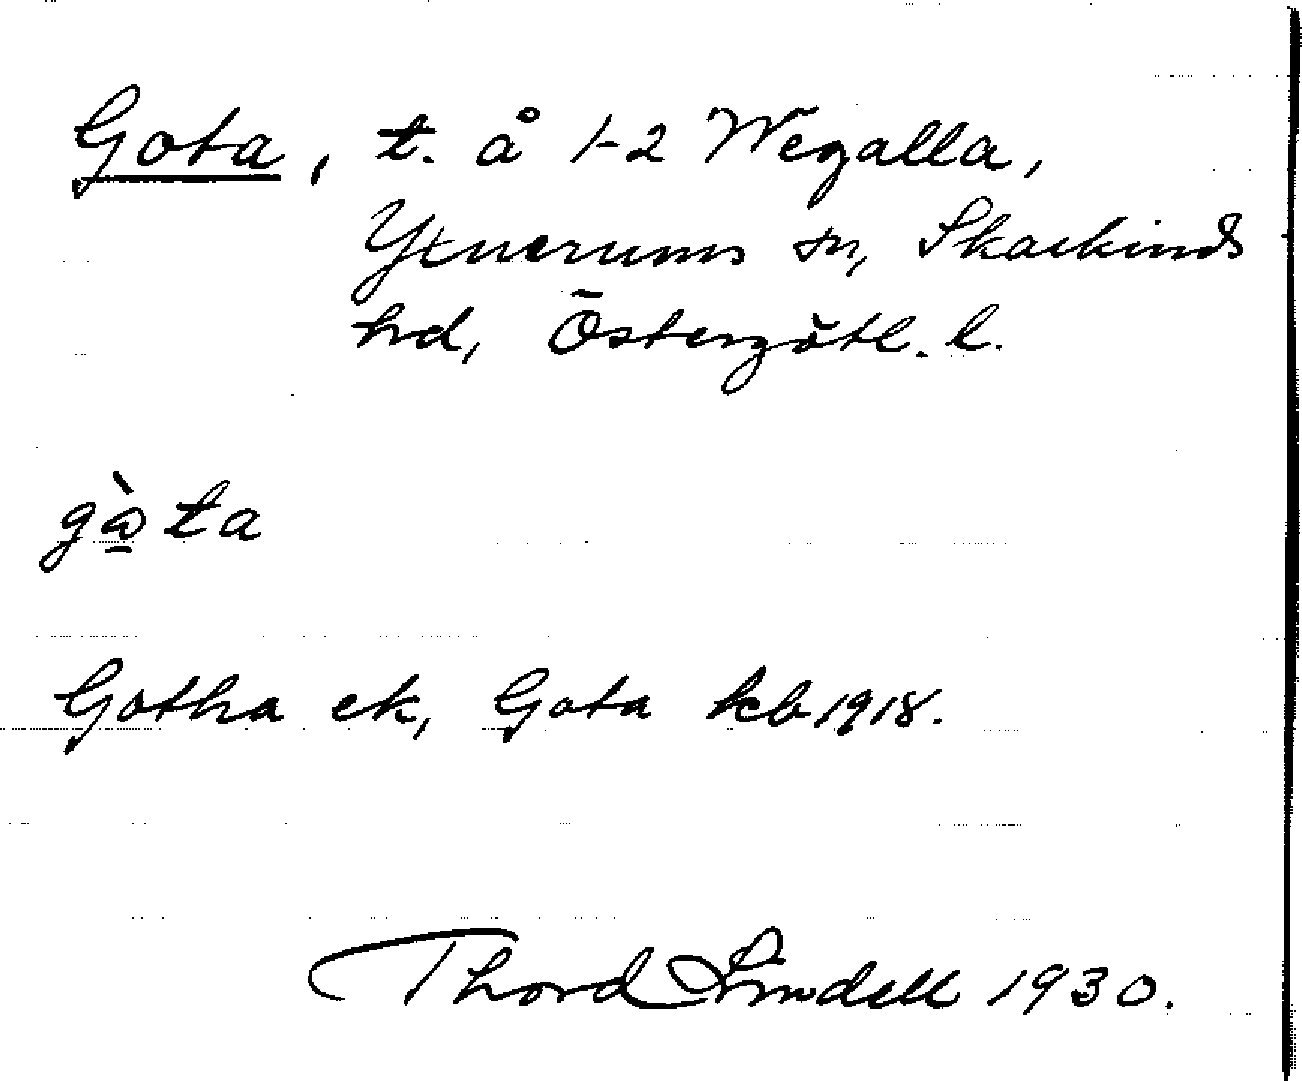 Gota, t. å 1-2 Wegalla,
Yxnerums sn, Skärkinds
hd, Östergötl. l.
gὼta
Gotha ek, Gota kb 1918.
Thord Lindell 1930.